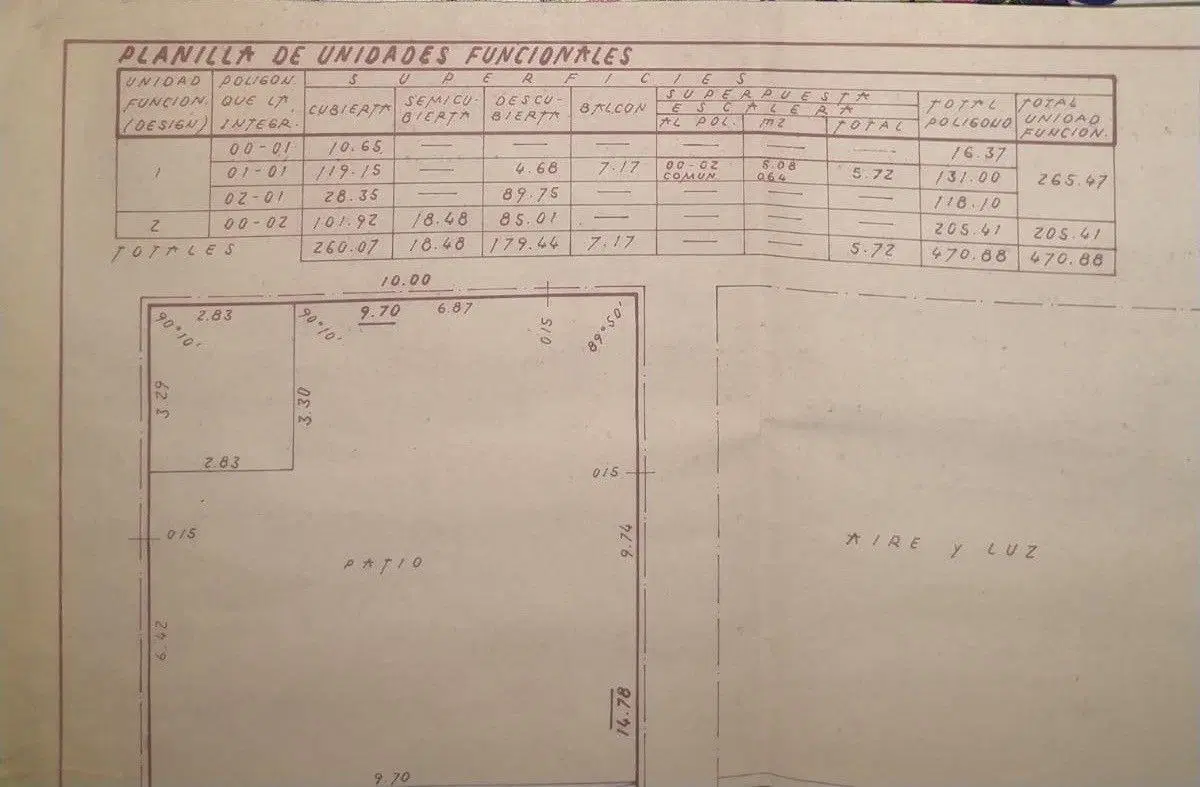 PLANILLA DE UNIDADES FUNCIONALES
UNIDAD FUNCION. (DESIGN) POLIGON. QUE LA INTEGR. SUPERFICIES
CUBIERTA SEMICU-BIERTA DESCU-BIERTA BALCON SUPERPUESTA ESCALERA TOTAL POLIGONO TOTAL UNIDAD FUNCION.
AL POL. m2 TOTAL
1 00-01 10.65 — — — — — — 16.37 265.47
01-01 119.15 — 4.68 7.17 00-02 COMUN 5.08 0.64 5.72 131.00
02-01 28.35 — 89.75 — 118.10
2 00-02 101.92 18.48 85.01 — — — — 205.41 205.41
TOTALES 260.07 18.48 179.44 7.17 — — 5.72 470.88 470.88
10.00
90°10' 2.83 90°10' 9.70 6.87 015 89°50'
3.29 3.30
2.83
015
015
9.74
PATIO
AIRE Y LUZ
6.42
14.78
9.70